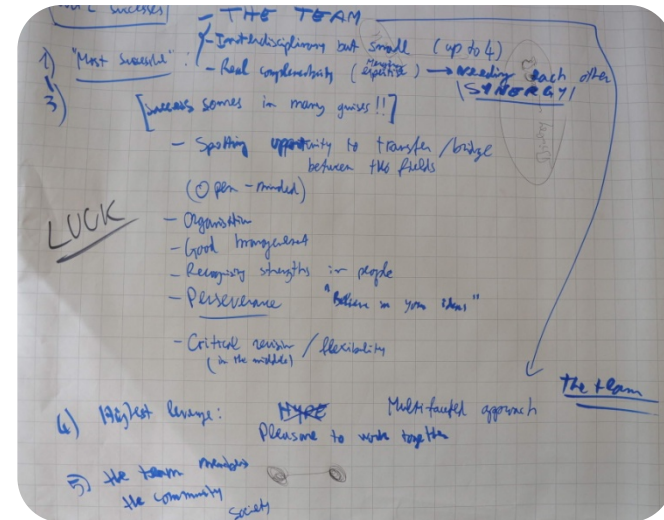 SUCCESSES
- THE TEAM
1) "Most Successful": - Interdisciplinary but small (up to 4)
3) - Real complementarity (expertise) → needing each other
SYNERGY
[success somes in many guises!!]
- Spotting opportunity to transfer / bridge
between the fields
(Open-minded)
LUCK
- Organisation
- Good management
- Recognising strengths in people
- Perseverance "Believe in your ideas"
- Critical revision / flexibility
(in the middle)
the team
4) Highest leverage: HYPE Multi-faceted approach
Pleasure to work together
5) the team members
the community
society